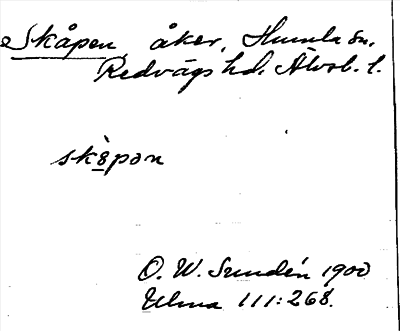 Skåpen, åker, Humla sn,
Redvägs hd. Älvsb. l.
sk8̀pon
O. W. Sundén 1900
Ulma 111:268.